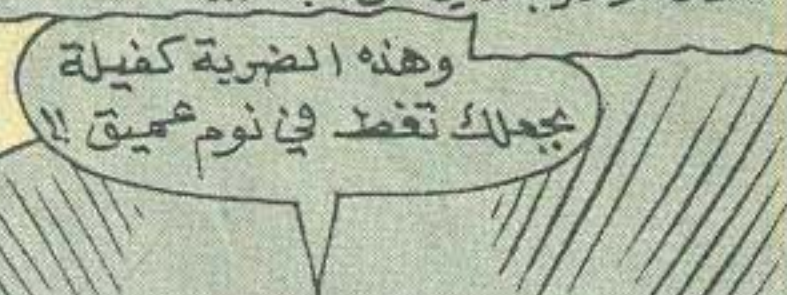 وهذه الضربة كفيلة
بجعلك تغط في نوم عميق !!